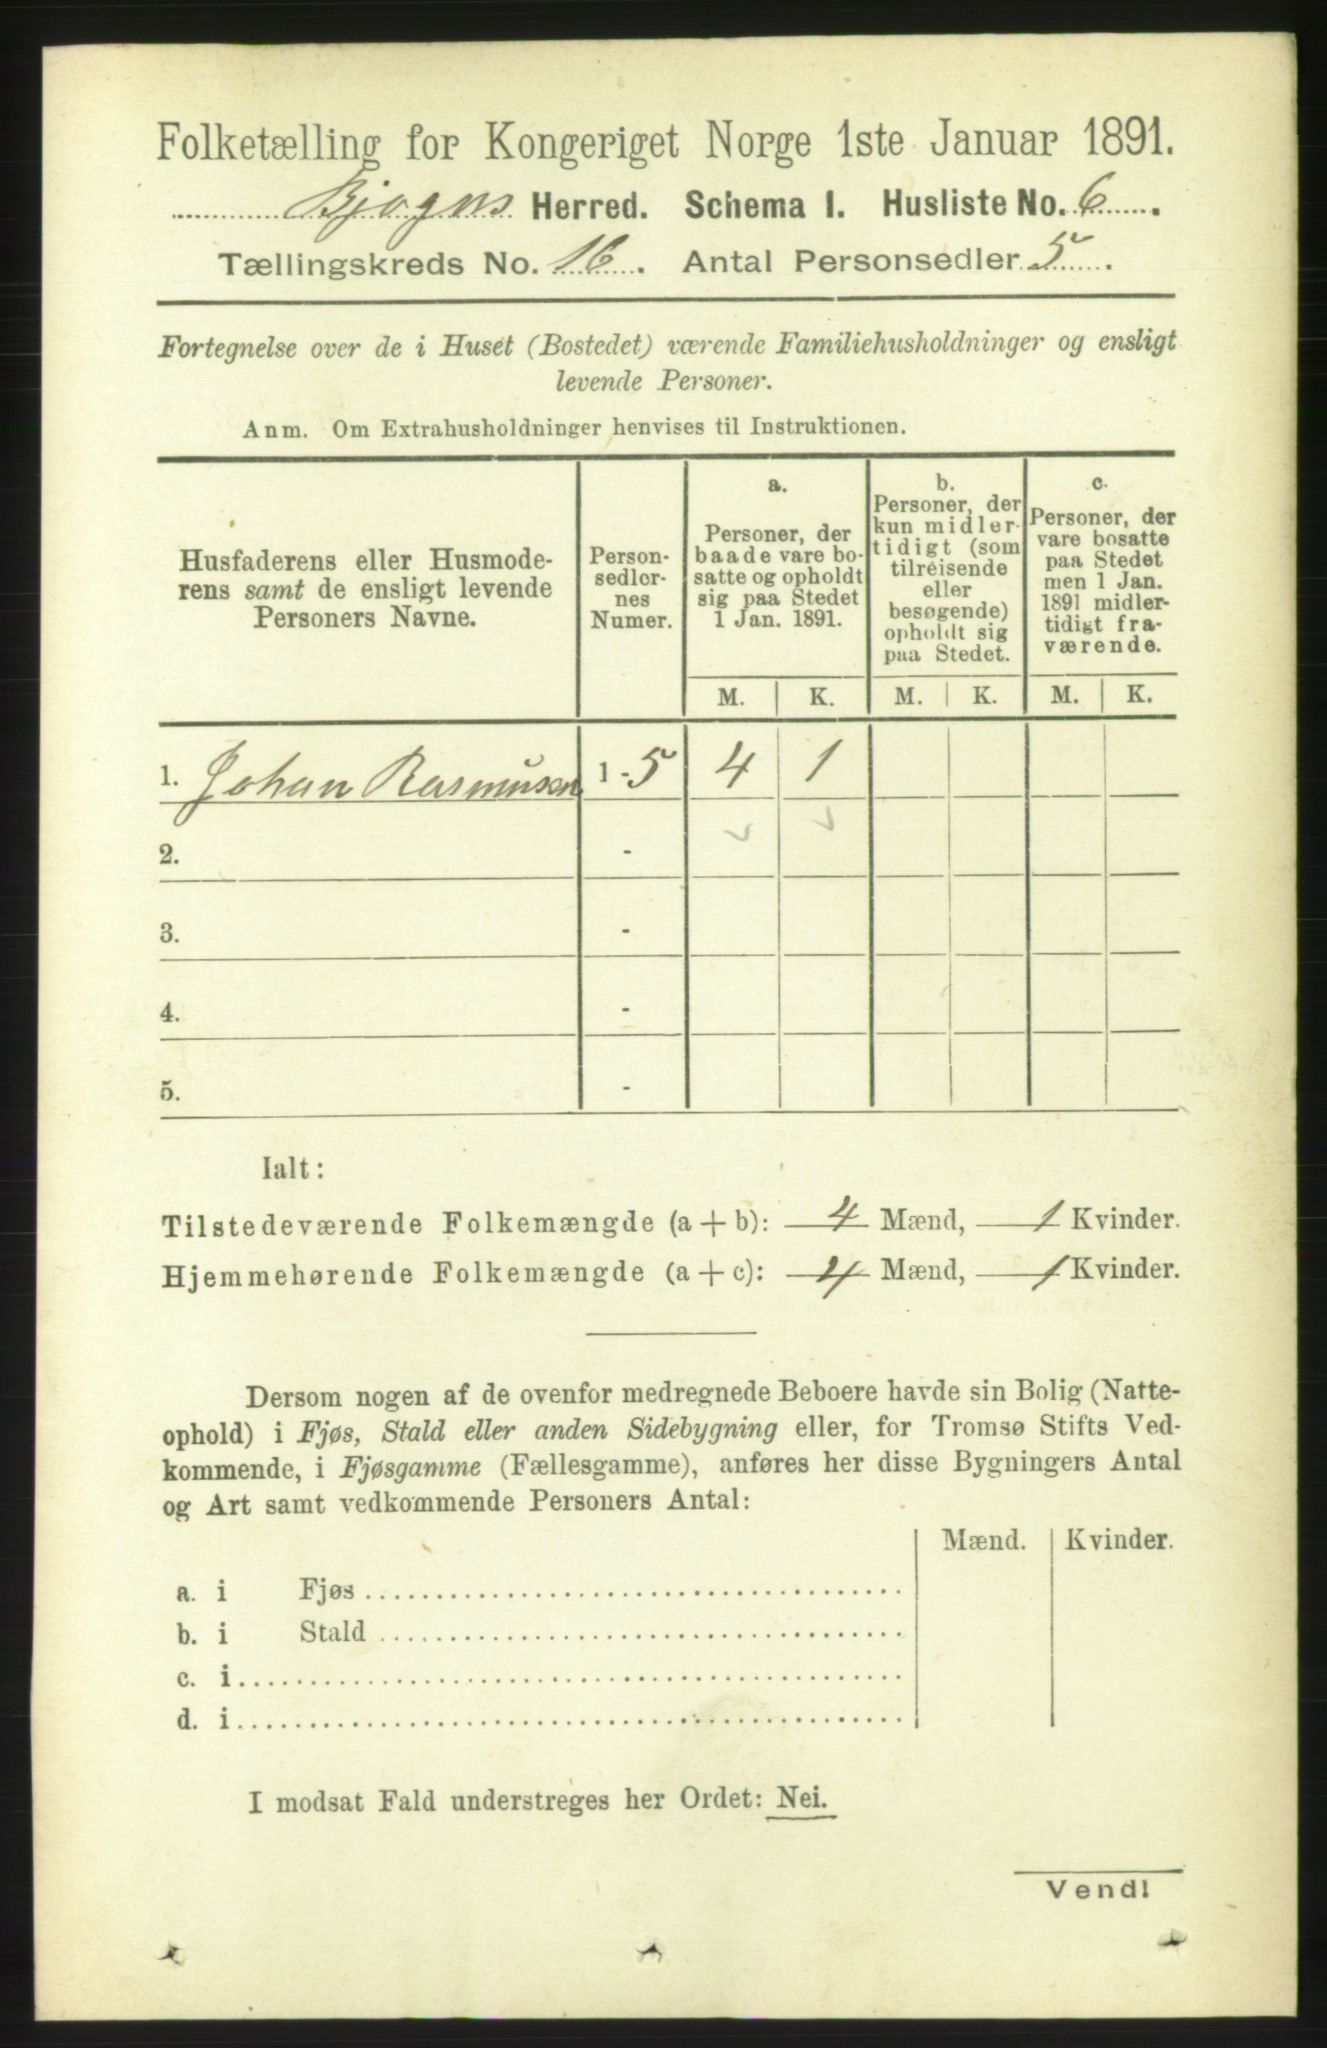 Folketælling for Kongeriget Norge 1ste Januar 1891.
Bjugns Herred. Schema I. Husliste No. 6.
Tællingskreds No. 16. Antal Personsedler 5.
Fortegnelse over de i Huset (Bostedet) værende Familiehusholdninger og ensligt
levende Personer.
Anm. Om Extrahusholdninger henvises til Instruktionen.
Husfaderens eller Husmode-
rens samt de ensligt levende
Personers Navne.
Person-
sedler-
nes
Numer.
a.
Personer, der
baade vare bo-
satte og opholdt
sig paa Stedet
1 Jan. 1891.
b.
Personer, der
kun midler-
tidigt (som
tilreisende
eller
besøgende)
opholdt sig
paa Stedet.
c.
Personer, der
vare bosatte
paa Stedet
men 1 Jan.
1891 midler-
tidigt fra-
værende.
M. K. M. K. M. K.
1. Johan Rasmusen 1-5 4 1
2. -
3. -
4. -
5. -
Ialt:
Tilstedeværende Folkemængde (a+b): 4 Mænd, 1 Kvinder.
Hjemmehørende Folkemængde (a+c): 4 Mænd, 1 Kvinder.
Dersom nogen af de ovenfor medregnede Beboere havde sin Bolig (Natte-
ophold) i Fjøs, Stald eller anden Sidebygning eller, for Tromsø Stifts Ved-
kommende, i Fjøsgamme (Fællesgamme), anføres her disse Bygningers Antal
og Art samt vedkommende Personers Antal:
Mænd. Kvinder.
a. i Fjøs
b. i Stald
c. i
d. i
I modsat Fald understreges her Ordet: Nei.
Vend!